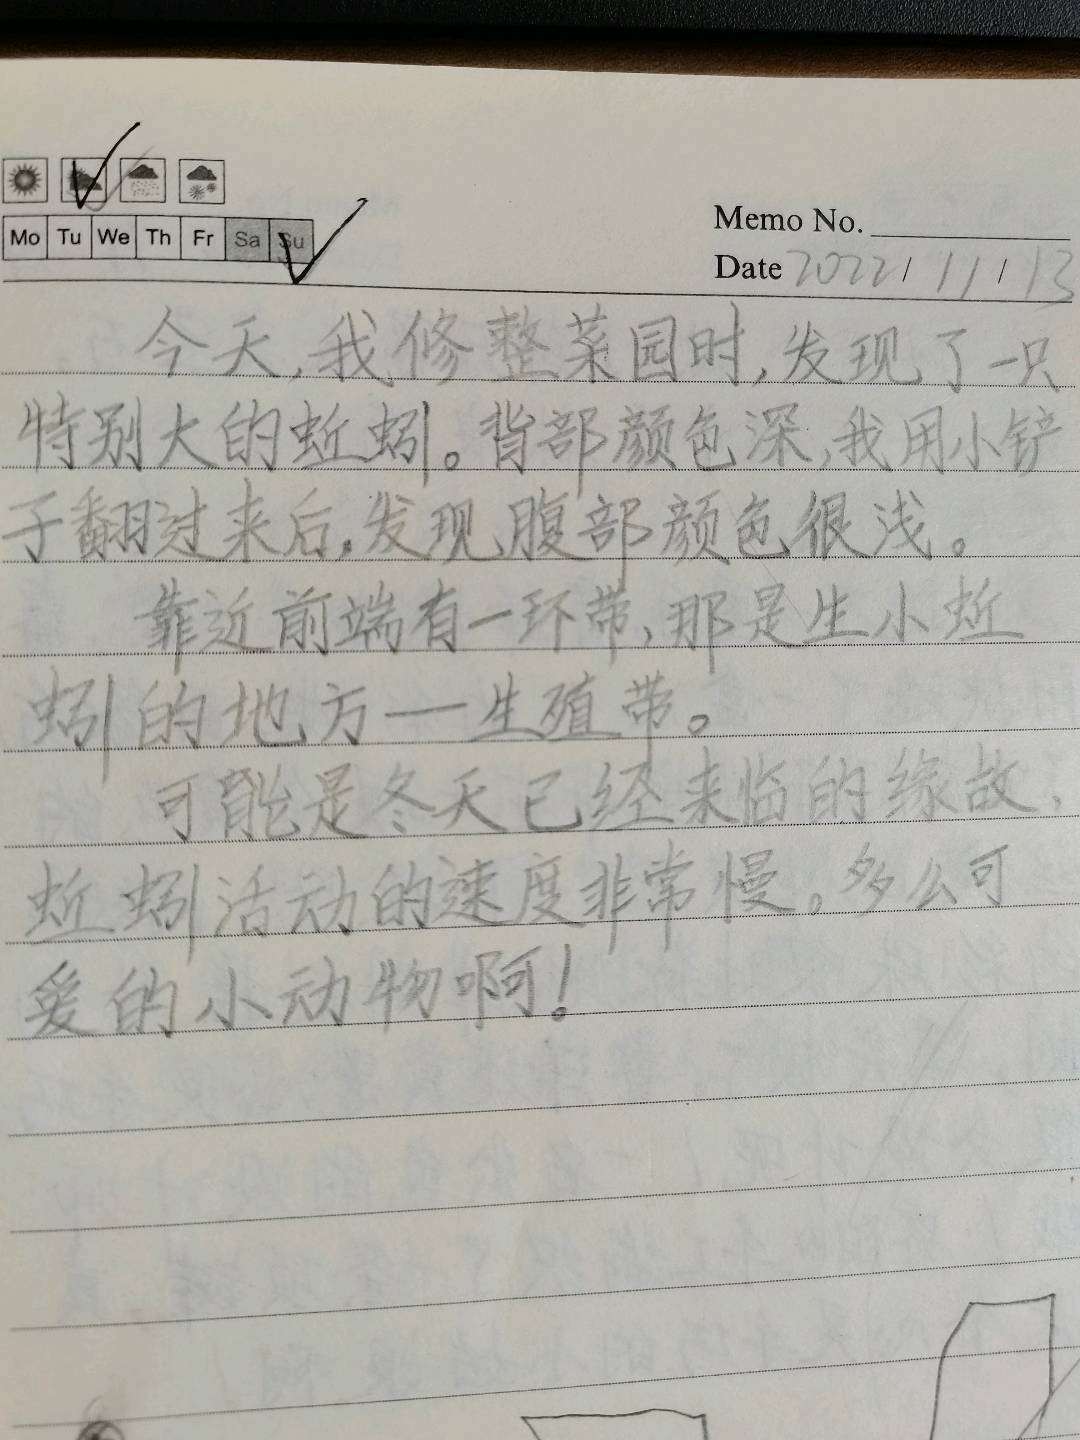 Mo Tu We Th Fr Sa Su
Memo No.
Date 2022/11/13
今天,我修整菜园时,发现了一只
特别大的蚯蚓。背部颜色深,我用小铲
子翻过来后,发现腹部颜色很浅。
靠近前端有一环带,那是生小蚯
蚓的地方——生殖带。
可能是冬天已经来临的缘故,
蚯蚓活动的速度非常慢。多么可
爱的小动物啊!